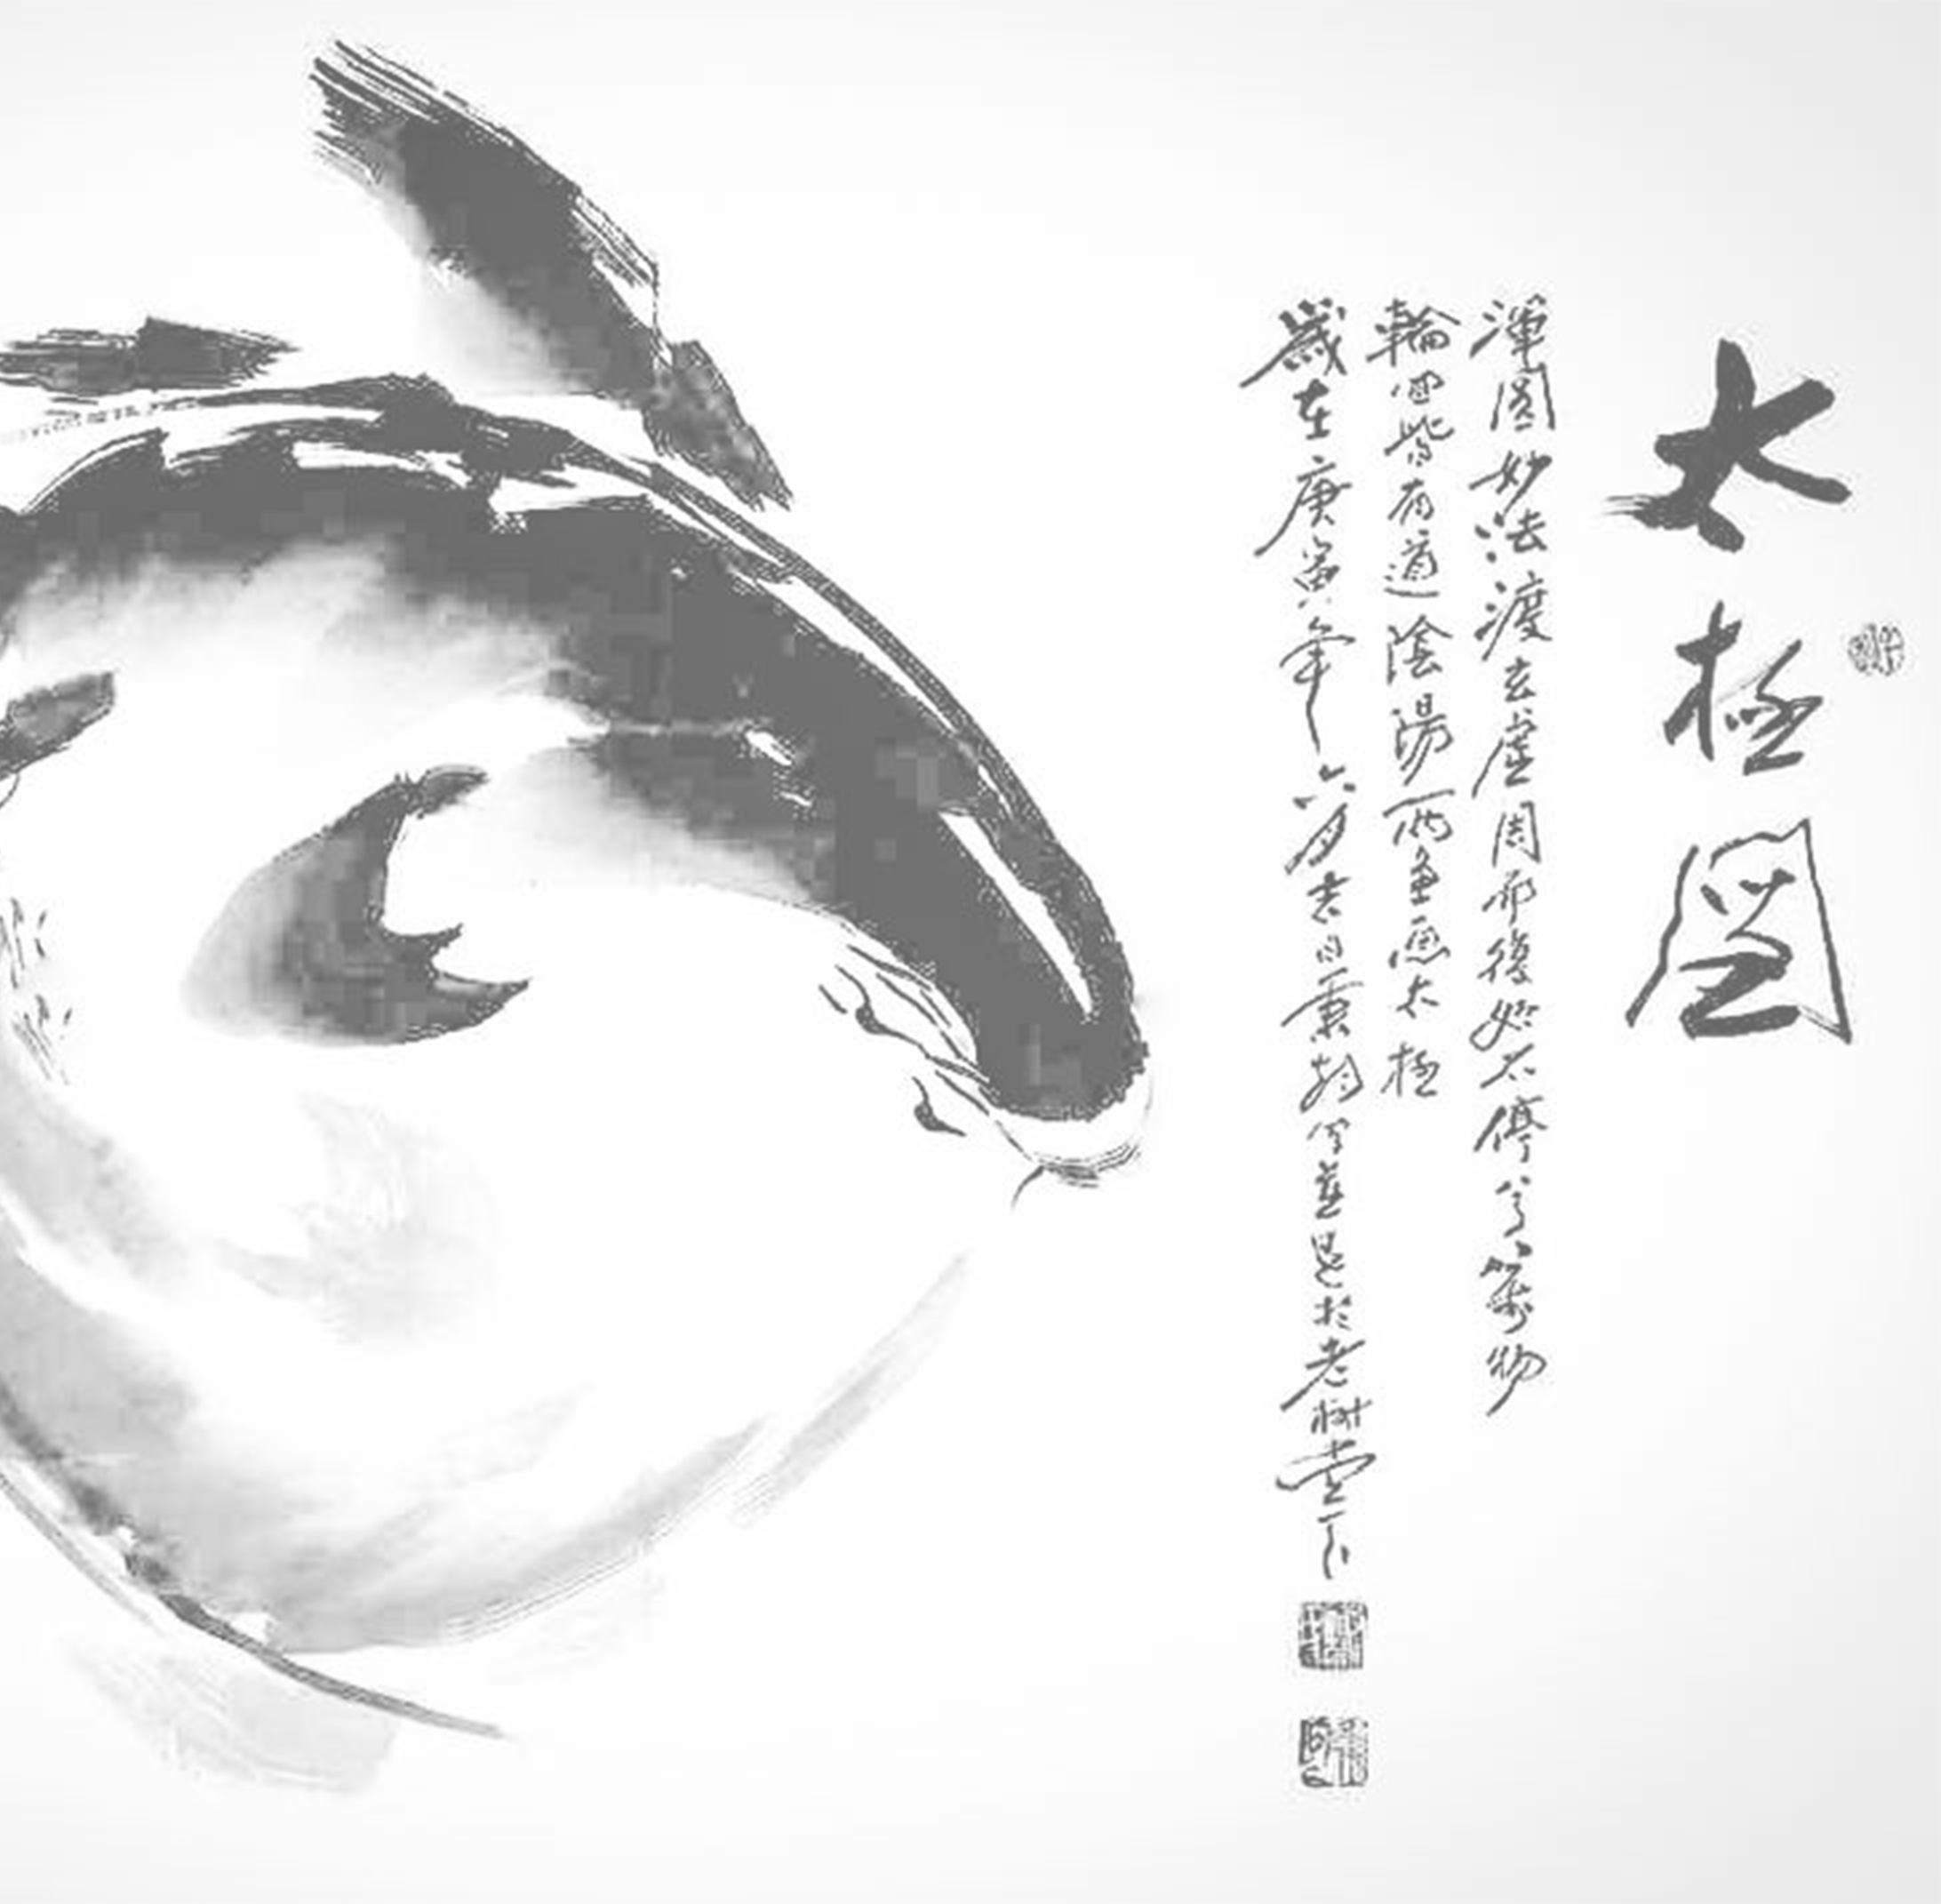 太極圖
渾圓妙法渡玄虛周而復始不停兮萬物
輪回皆有道陰陽兩魚畫太極
歲在庚寅年六月吉日秉翰 於老樹堂下